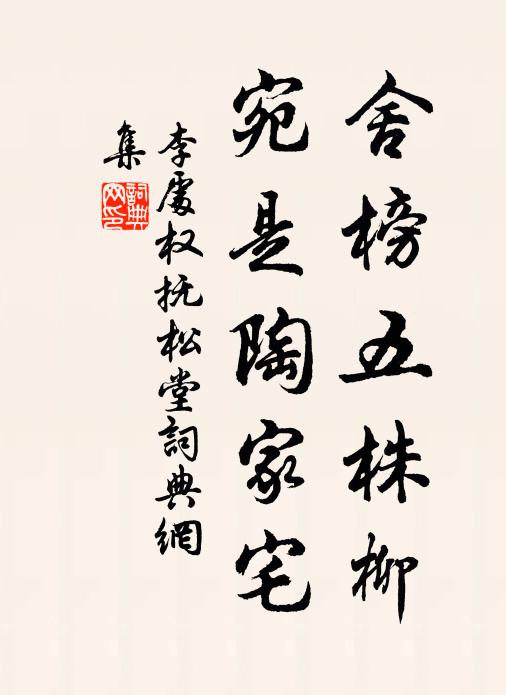 舍榜五株柳
宛是陶家宅
李處权抚松堂詞典網
集
詞典
网印